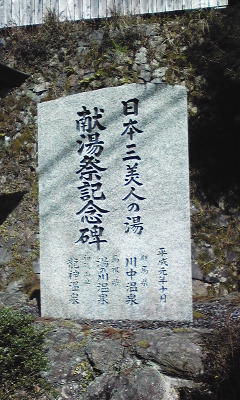 日本三美人の湯
献湯祭記念碑
平成元年十月
群馬県
川中温泉
島根県
湯の川温泉
和歌山県
龍神温泉